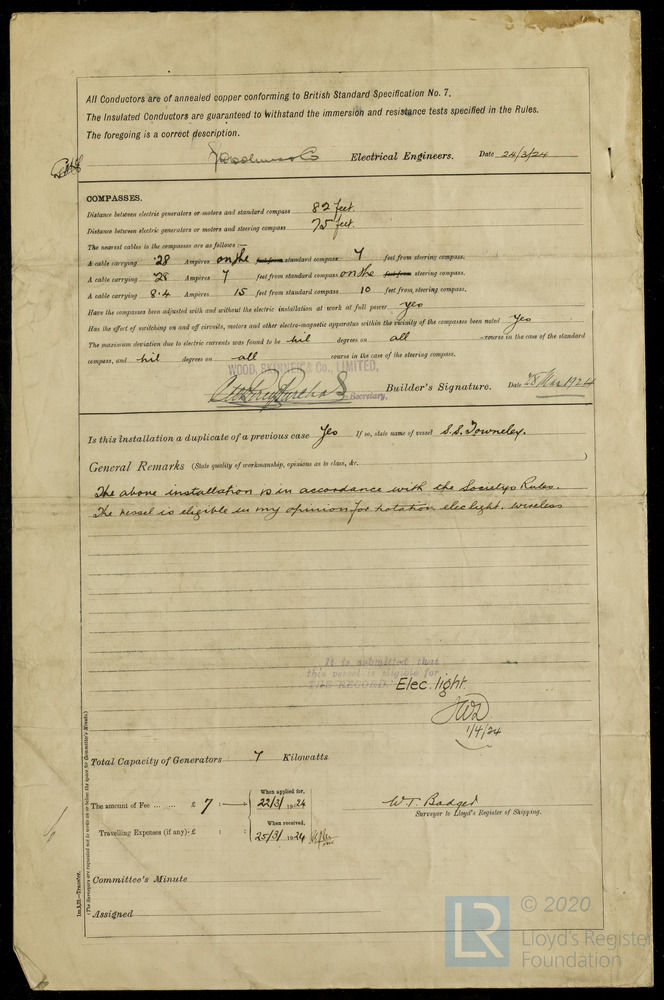 All Conductors are of annealed copper conforming to British Standard Specification No. 7.
The Insulated Conductors are guaranteed to withstand the immersion and resistance tests specified in the Rules.
The foregoing is a correct description.
Electrical Engineers. Date 24/3/24
COMPASSES.
Distance between electric generators or motors and standard compass 82 feet.
Distance between electric generators or motors and steering compass 75 feet.
The nearest cables to the compasses are as follows:—
A cable carrying .28 Ampères on the feet from standard compass 7 feet from steering compass.
A cable carrying .28 Ampères 7 feet from standard compass on the feet from steering compass.
A cable carrying 8.4 Ampères 15 feet from standard compass 10 feet from steering compass.
Have the compasses been adjusted with and without the electric installation at work at full power yes
Has the effect of switching on and off circuits, motors and other electro-magnetic apparatus within the vicinity of the compasses been noted yes
The maximum deviation due to electric currents was found to be nil degrees on all course in the case of the standard
compass, and nil degrees on all course in the case of the steering compass.
WOOD, SKINNER & Co., LIMITED,
Secretary.
Builder's Signature. Date 28 Mar 1924
Is this installation a duplicate of a previous case Yes If so, state name of vessel S.S. Towneley.
General Remarks (State quality of workmanship, opinions as to class, &c.)
The above installation is in accordance with the Societys Rules.
The vessel is eligible in my opinion for notation elec light. wireless
It is submitted that
this vessel is eligible for
THE RECORD. Elec. light.
1/4/24
Total Capacity of Generators 7 Kilowatts
The amount of Fee ... ... £ 7 : :
When applied for,
22/3/1924
W. T. Badger
Surveyor to Lloyd's Register of Shipping.
Travelling Expenses (if any) £ : :
When received,
25/3/1924
Committee's Minute
Assigned
Im.3,21.—Transfer.
(The Surveyors are requested not to write on or below the space for Committee's Minute.)
LR
© 2020
Lloyd's Register
Foundation